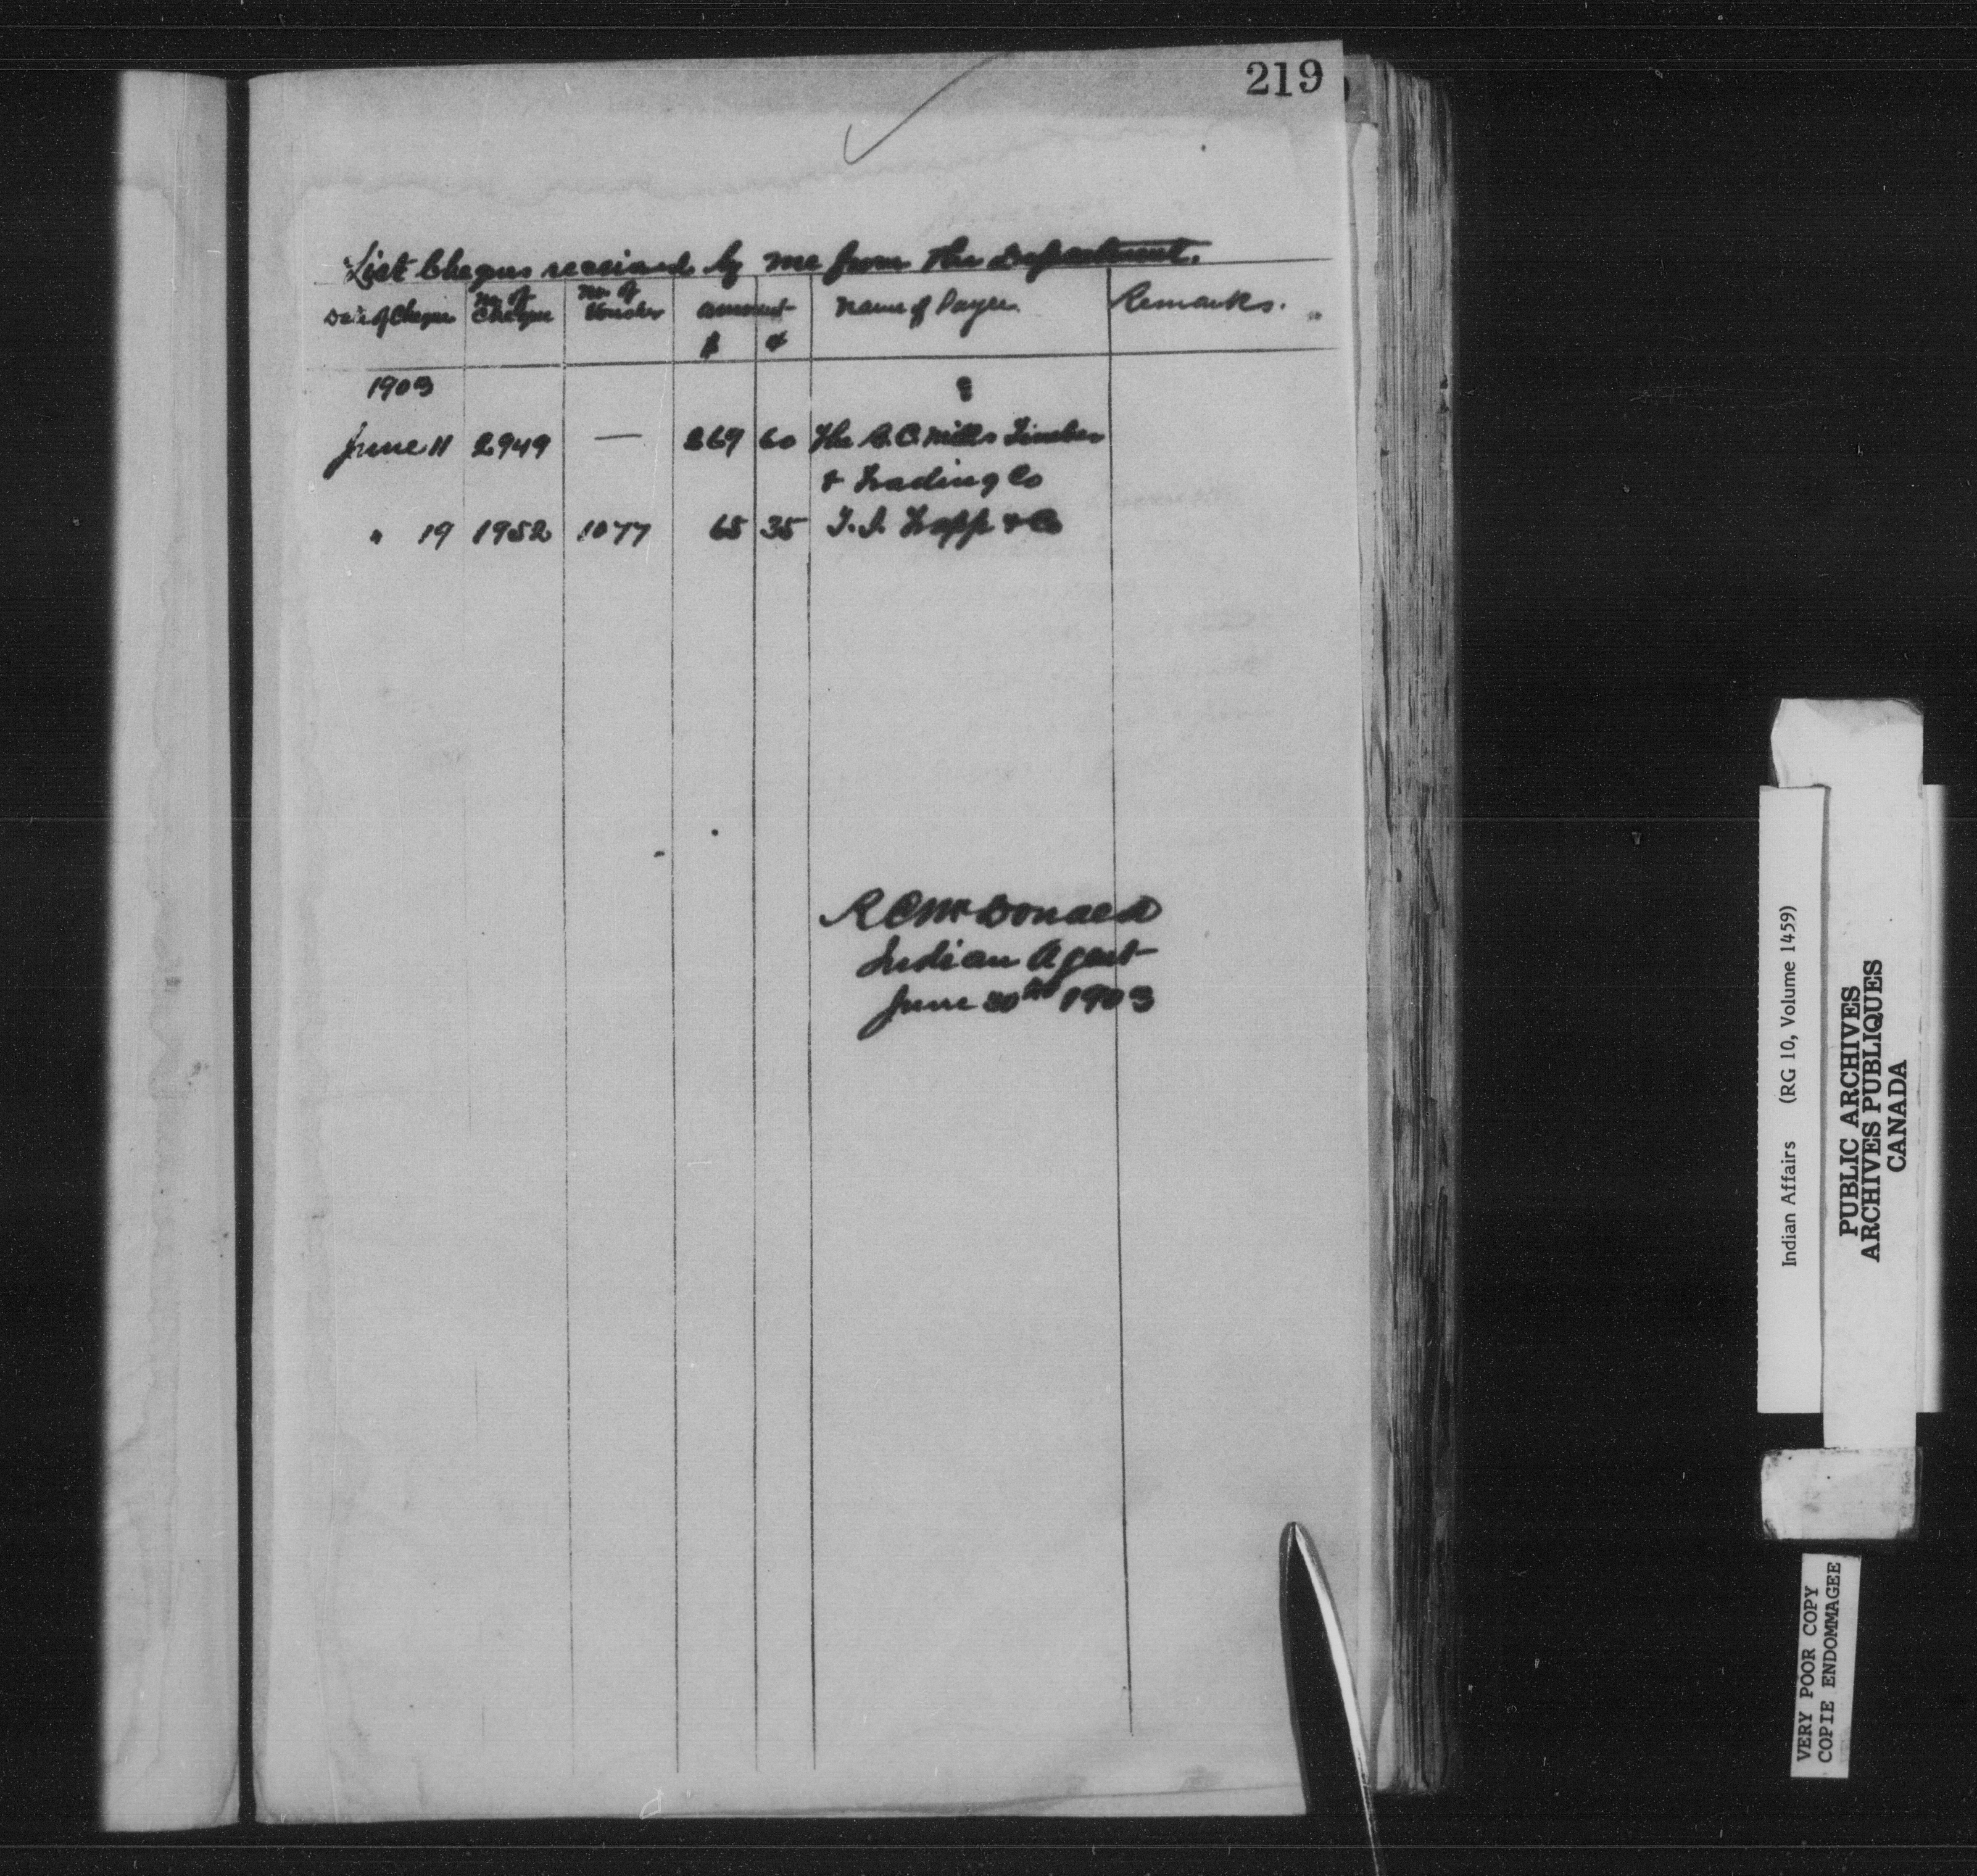 219
List Cheques received by me from the Department.
Date of Cheque No. of Cheque No. of Voucher amount $ ¢ Name of Payee Remarks.
1903
June 11 2949 — 269 60 The B.C. Mills Timber
& Trading Co
" 19 1952 1077 65 35 T. J. Trapp & Co
R C McDonald
Indian Agent
June 30th 1903
Indian Affairs (RG 10, Volume 1459)
PUBLIC ARCHIVES
ARCHIVES PUBLIQUES
CANADA
VERY POOR COPY
COPIE ENDOMMAGEE